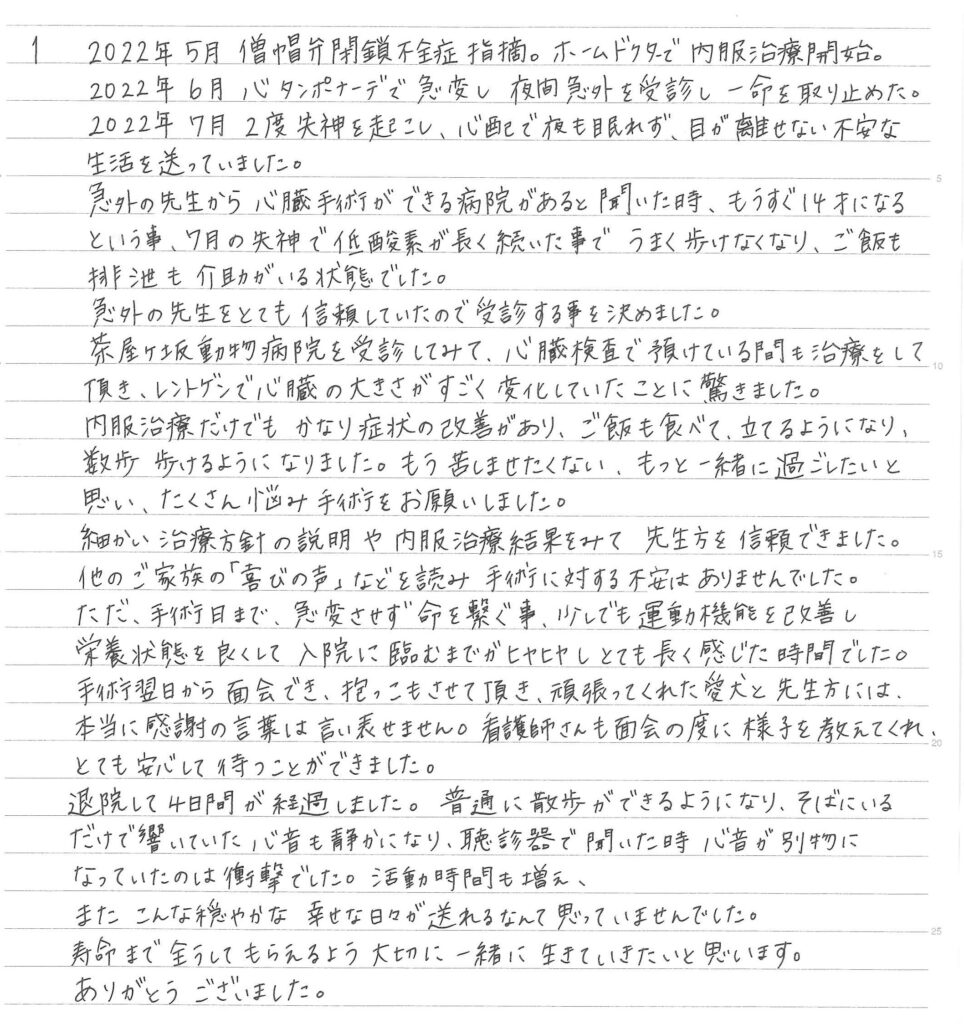 1 2022年5月 僧帽弁閉鎖不全症指摘。ホームドクターで内服治療開始。
2022年6月 心タンポナーデで急変し 夜間急外を受診し一命を取り止めた。
2022年7月 2度失神を起こし、心配で夜も眠れず、目が離せない不安な
生活を送っていました。
急外の先生から心臓手術ができる病院があると聞いた時、もうすぐ14才になる
という事、7月の失神で低酸素が長く続いた事でうまく歩けなくなり、ご飯も
排泄も介助がいる状態でした。
急外の先生をとても信頼していたので受診する事を決めました。
茶屋ヶ坂動物病院を受診してみて、心臓検査で預けている間も治療をして
頂き、レントゲンで心臓の大きさがすごく変化していたことに驚きました。
内服治療だけでもかなり症状の改善があり、ご飯も食べて、立てるようになり、
数歩 歩けるようになりました。もう苦しませたくない、もっと一緒に過ごしたいと
思い、たくさん悩み手術をお願いしました。
細かい治療方針の説明や内服治療結果をみて 先生方を信頼できました。
他のご家族の「喜びの声」などを読み 手術に対する不安はありませんでした。
ただ、手術日まで、急変させず命を繋ぐ事、少しでも運動機能を改善し
栄養状態を良くして 入院に臨むまでがヒヤヒヤしとても長く感じた時間でした。
手術翌日から面会でき、抱っこもさせて頂き、頑張ってくれた愛犬と先生方には、
本当に感謝の言葉は言い表せません。看護師さんも面会の度に様子を教えてくれ、
とても安心して待つことができました。
退院して4日間が経過しました。普通に散歩ができるようになり、そばにいる
だけで響いていた心音も静かになり、聴診器で聞いた時 心音が別物に
なっていたのは衝撃でした。活動時間も増え、
またこんな穏やかな 幸せな日々が送れるなんて思っていませんでした。
寿命まで全うしてもらえるよう大切に一緒に生きていきたいと思います。
ありがとうございました。
5
10
15
20
25